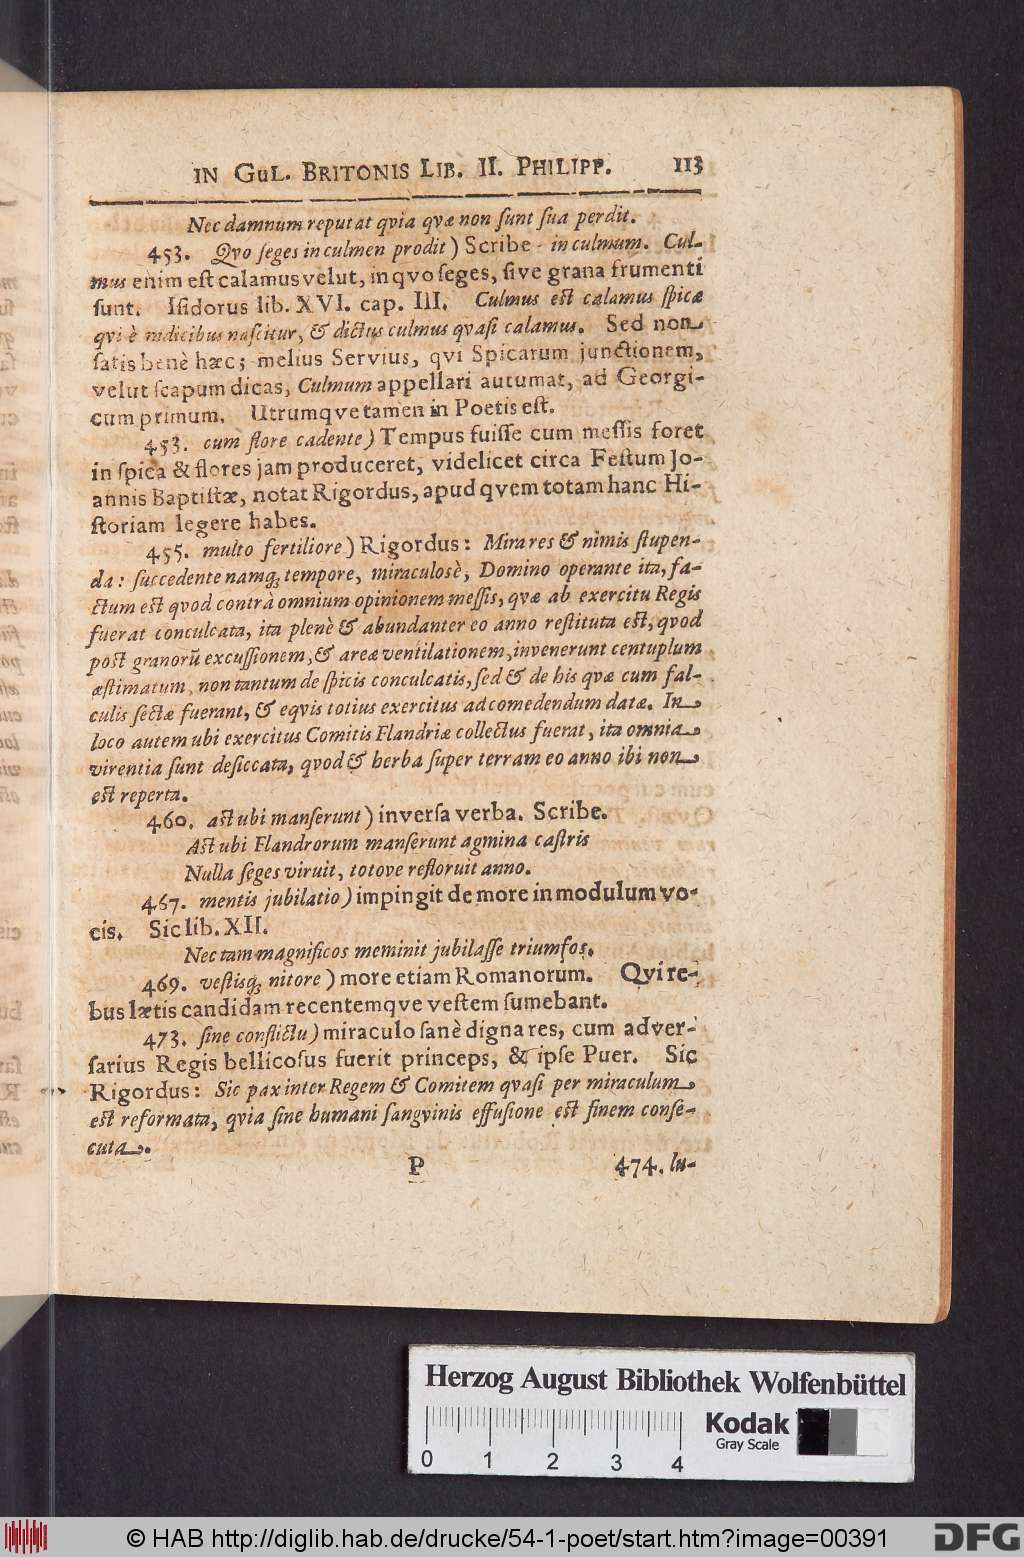 IN GUL. BRITONIS LIB. II. PHILIPP. 113
Nec damnum reputat qvia qvæ non ſunt ſua perdit.
453. Qvo ſeges in culmen prodit) Scribe in culmum. Cul-
mus enim eſt calamus velut, in qvo ſeges, ſive grana frumenti
ſunt. Iſidorus lib. XVI. cap. III. Culmus eſt calamus ſpicæ
qvi è radicibus naſcitur, & dictus culmus qvaſi calamus. Sed non
ſatis benè hæc; melius Servius, qvi Spicarum junctionem,
velut ſcapum dicas, Culmum appellari autumat, ad Georgi-
cum primum. Utrumqve tamen in Poetis eſt.
453. cum flore cadente) Tempus fuiſſe cum meſſis foret
in ſpica & flores jam produceret, videlicet circa Feſtum Jo-
annis Baptiſtæ, notat Rigordus, apud qvem totam hanc Hi-
ſtoriam legere habes.
455. multo fertiliore) Rigordus: Mira res & nimis ſtupen-
da: ſuccedente namq; tempore, miraculosè, Domino operante ita, fa-
ctum eſt qvod contrà omnium opinionem meſſis, qvæ ab exercitu Regis
fuerat conculcata, ita plenè & abundanter eo anno reſtituta eſt, qvod
poſt granorũ excuſſionem, & areæ ventilationem, invenerunt centuplum
æſtimatum, non tantum de ſpicis conculcatis, ſed & de his qvæ cum fal-
culis ſectæ fuerant, & eqvis totius exercitus ad comedendum datæ. In
loco autem ubi exercitus Comitis Flandriæ collectus fuerat, ita omnia
virentia ſunt deſiccata, qvod & herba ſuper terram eo anno ibi non
eſt reperta.
460. aſt ubi manſerunt) inverſa verba. Scribe.
Aſt ubi Flandrorum manſerunt agmina caſtris
Nulla ſeges viruit, totove refloruit anno.
467. mentis jubilatio) impingit de more in modulum vo-
cis. Sic lib. XII.
Nec tam magnificos meminit jubilaſſe triumfos.
469. veſtisq; nitore) more etiam Romanorum. Qvi re-
bus lætis candidam recentemqve veſtem ſumebant.
473. ſine conflictu) miraculo ſanè digna res, cum adver-
ſarius Regis bellicoſus fuerit princeps, & ipſe Puer. Sic
Rigordus: Sic pax inter Regem & Comitem qvaſi per miraculum
eſt reformata, qvia ſine humani ſangvinis effuſione eſt finem conſe-
cuta.
P 474. lu-
Herzog August Bibliothek Wolfenbüttel
0 1 2 3 4
Kodak
Gray Scale
© HAB http://diglib.hab.de/drucke/54-1-poet/start.htm?image=00391
DFG